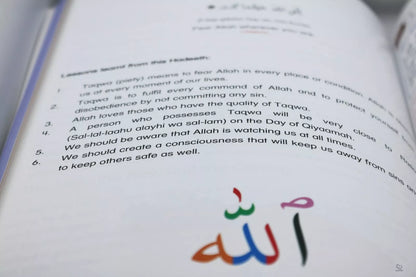 Fear Allah wherever you are.
Lessons learnt from this Hadeeth:
1. Taqwa (piety) means to fear Allah in every place or condition. Allah
us at every moment of our lives.
2. Taqwa is to fulfil every command of Allah and to protect yourself
disobedience by not committing any sin.
3. Allah loves those who have the quality of Taqwa.
4. A person who possesses Taqwa will be very close to
(Sal-lal-laahu alayhi wa sal-lam) on the Day of Qiyaamah.
5. We should be aware that Allah is watching us at all times.
6. We should create a consciousness that will keep us away from sins
to keep others safe as well.
الله